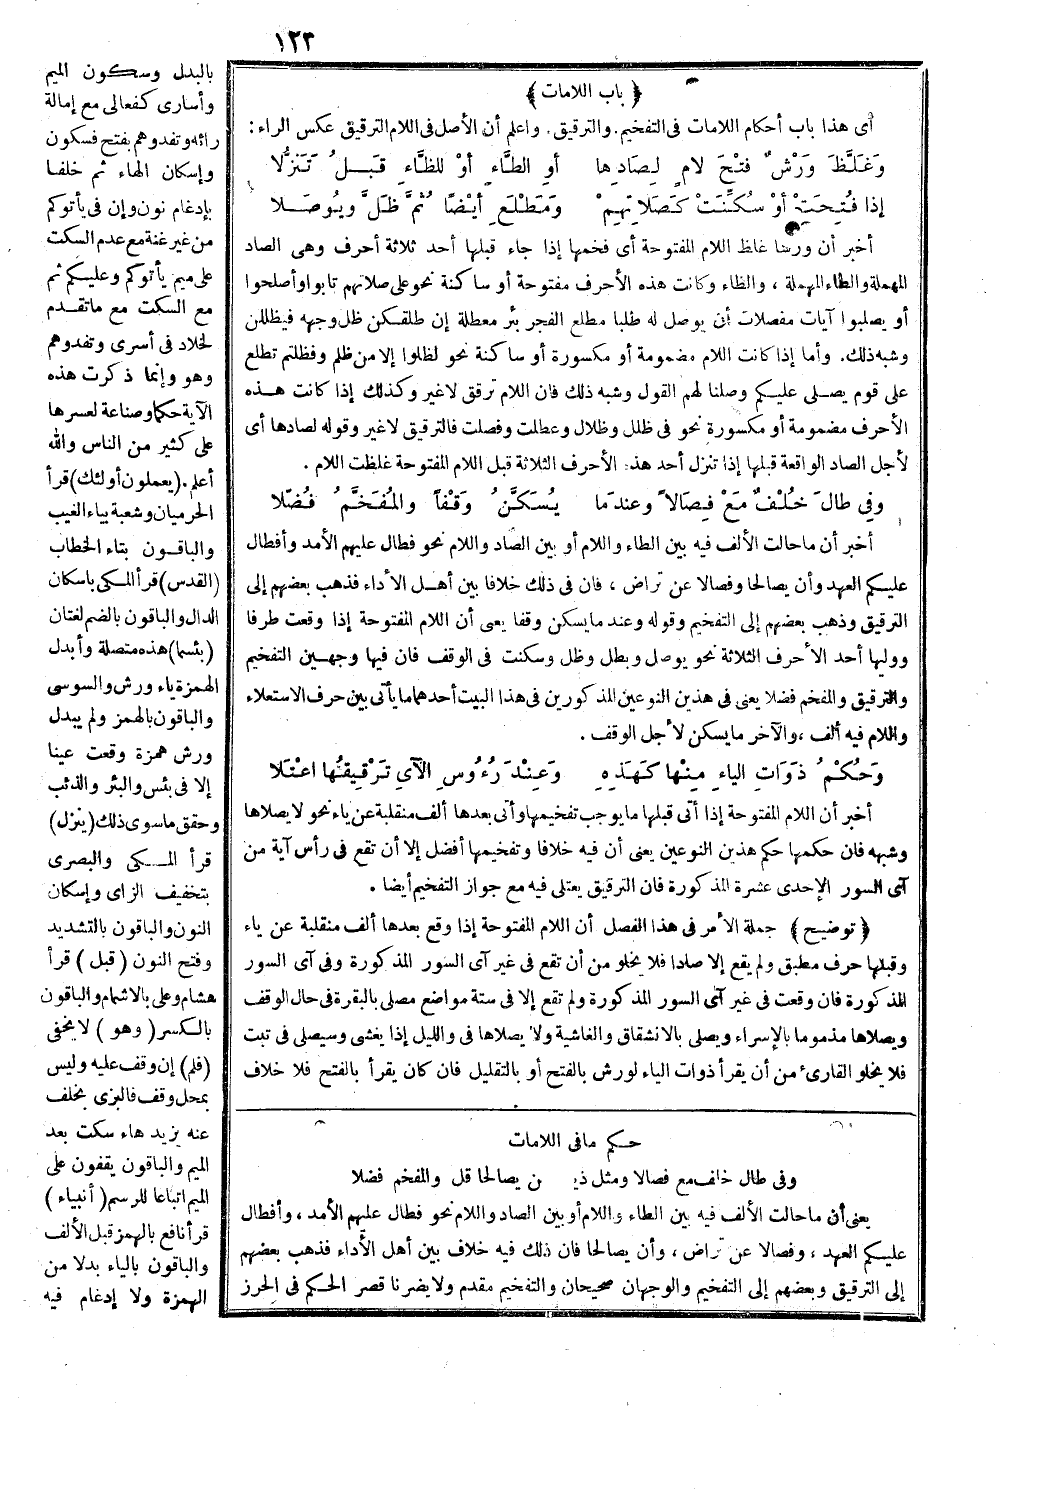 ١٢٣
﴿ باب اللامات ﴾
أى هذا باب أحكام اللامات فى التفخيم. والترقيق. واعلم أن الأصل فى اللام الترقيق عكس الراء :
وَغَلَّظَ وَرْشٌ فَتْحَ لَامٍ لِصَادِهَا أَوِ الطَّاءِ أَوْ لِلظَّاءِ قَبْلُ تَنَزُّلَا
إذا فُتِحَتْ أَوْ سُكِّنَتْ كَصَلَاتِهِمْ وَمَطْلَعِ أَيْضًا ثُمَّ ظَلَّ وَيُوصَلَا
أخبر أن ورشا غلظ اللام المفتوحة أى فخمها إذا جاء قبلها أحد ثلاثة أحرف وهى الصاد
المهملة والطاء المهملة ، والظاء وكانت هذه الأحرف مفتوحة أو ساكنة نحو على صلاتهم تابوا وأصلحوا
أو يصلبوا آيات مفصلات أن يوصل له طلبا مطلع الفجر بئر معطلة إن طلقكن ظل وجهه فيظللن
وشبه ذلك. وأما إذا كانت اللام مضمومة أو مكسورة أو ساكنة نحو لظلوا إلا من ظلم وفظلتم تطلع
على قوم يصلى عليكم وصلنا لهم القول وشبه ذلك فان اللام ترقق لاغير وكذلك إذا كانت هذه
الأحرف مضمومة أو مكسورة نحو فى ظلل وظلال وعطلت وفصلت فالترقيق لاغير وقوله لصادها أى
لأجل الصاد الواقعة قبلها إذا تنزل أحد هذه الأحرف الثلاثة قبل اللام المفتوحة غلظت اللام .
وَفِى طَالَ خُلْفٌ مَعْ فِصَالًا وَعِنْدَمَا يُسَكَّنُ وَقْفًا وَالْمُفَخَّمُ فُضِّلَا
أخبر أن ما حالت الألف فيه بين الطاء واللام أو بين الصاد واللام نحو فطال عليهم الأمد وأفطال
عليكم العهد وأن يصالحا وفصالا عن تراض ، فان فى ذلك خلافا بين أهل الأداء فذهب بعضهم إلى
الترقيق وذهب بعضهم إلى التفخيم وقوله وعند ما يسكن وقفا يعى أن اللام المفتوحة إذا وقعت طرفا
ووليها أحد الأحرف الثلاثة نحو يوصل وبطل وظل وسكنت فى الوقف فان فيها وجهين التفخيم
والترقيق والمفخم فضلا يعنى فى هذين النوعين المذكورين فى هذا البيت أحدهما ما يأتى بين حرف الاستعلاء
واللام فيه ألف ، والآخر ما يسكن لأجل الوقف .
وَحُكْمُ ذَوَاتِ الْيَاءِ مِنْهَا كَهَذِهِ وَعِنْدَ رُءُوسِ الْآىِ تَرْقِيقُهَا اعْتَلَا
أخبر أن اللام المفتوحة إذا أتى قبلها ما يوجب تفخيمها وأتى بعدها ألف منقلبة عن ياء نحو لا يصلاها
وشبهه فان حكمها حكم هذين النوعين يعنى أن فيه خلافا وتفخيمها أفضل إلا أن تقع فى رأس آية من
آى السور الإحدى عشرة المذكورة فان الترقيق يعتلى فيه مع جواز التفخيم أيضا .
﴿ توضيح ﴾ جملة الأمر فى هذا الفصل أن اللام المفتوحة إذا وقع بعدها ألف منقلبة عن ياء
وقبلها حرف مطبق ولم يقع إلا صادا فلا يخلو من أن تقع فى غير آى السور المذكورة وفى آى السور
المذكورة فان وقعت فى غير آى السور المذكورة ولم تقع إلا فى ستة مواضع مصلى بالبقرة فى حال الوقف
ويصلاها مذموما بالإسراء ويصلى بالانشقاق والغاشية ولا يصلاها فى والليل إذا يغشى وسيصلى فى تبت
فلا يخلو القارئ من أن يقرأ ذوات الياء لورش بالفتح أو بالتقليل فان كان يقرأ بالفتح فلا خلاف
حكم مافى اللامات
وفى طال خلف مع فصالا ومثل ذين يصالحا قل والمفخم فضلا
يعنى أن ما حالت الألف فيه بين الطاء واللام أو بين الصاد واللام نحو فطال عليهم الأمد ، وأفطال
عليكم العهد ، وفصالا عن تراض ، وأن يصالحا فان ذلك فيه خلاف بين أهل الأداء فذهب بعضهم
إلى الترقيق وبعضهم إلى التفخيم والوجهان صحيحان والتفخيم مقدم ولا يضرنا قصر الحكم فى الحرز
بالبدل وسكون الميم
وأسارى كفعالى مع إمالة
رائه وتفدوهم بفتح فسكون
وإسكان الهاء ثم خلفا
بإدغام نون وإن فى يأتوكم
من غير غنة مع عدم السكت
على ميم يأتوكم وعليكم ثم
مع السكت مع ما تقدم
لخلاد فى أسرى وتفدوهم
وهو وإنما ذكرت هذه
الآية حكما وصناعة لعسرها
على كثير من الناس والله
أعلم. (يعملون أولئك) قرأ
الحرميان وشعبة بياء الغيب
والباقون بتاء الخطاب
(القدس) قرأ المكى باسكان
الدال والباقون بالضم لغتان
(بئسما) هذه متصلة وأبدل
الهمزة ياء ورش والسوسى
والباقون بالهمز ولم يبدل
ورش همزة وقعت عينا
إلا فى بئس والبئر والذئب
وحقق ماسوى ذلك (ينزل)
قرأ المكى والبصرى
بتخفيف الزاى وإسكان
النون والباقون بالتشديد
وفتح النون ( قبل ) قرأ
هشام وعلى بالاشمام والباقون
بالكسر ( وهو ) لا يخفى
(فلم) إن وقف عليه وليس
بمحل وقف فالبزى بخلف
عنه يزيد هاء سكت بعد
الميم والباقون يقفون على
الميم اتباعا للرسم ( أنبياء )
قرأ نافع بالهمز قبل الألف
والباقون بالياء بدلا من
الهمزة ولا إدغام فيه